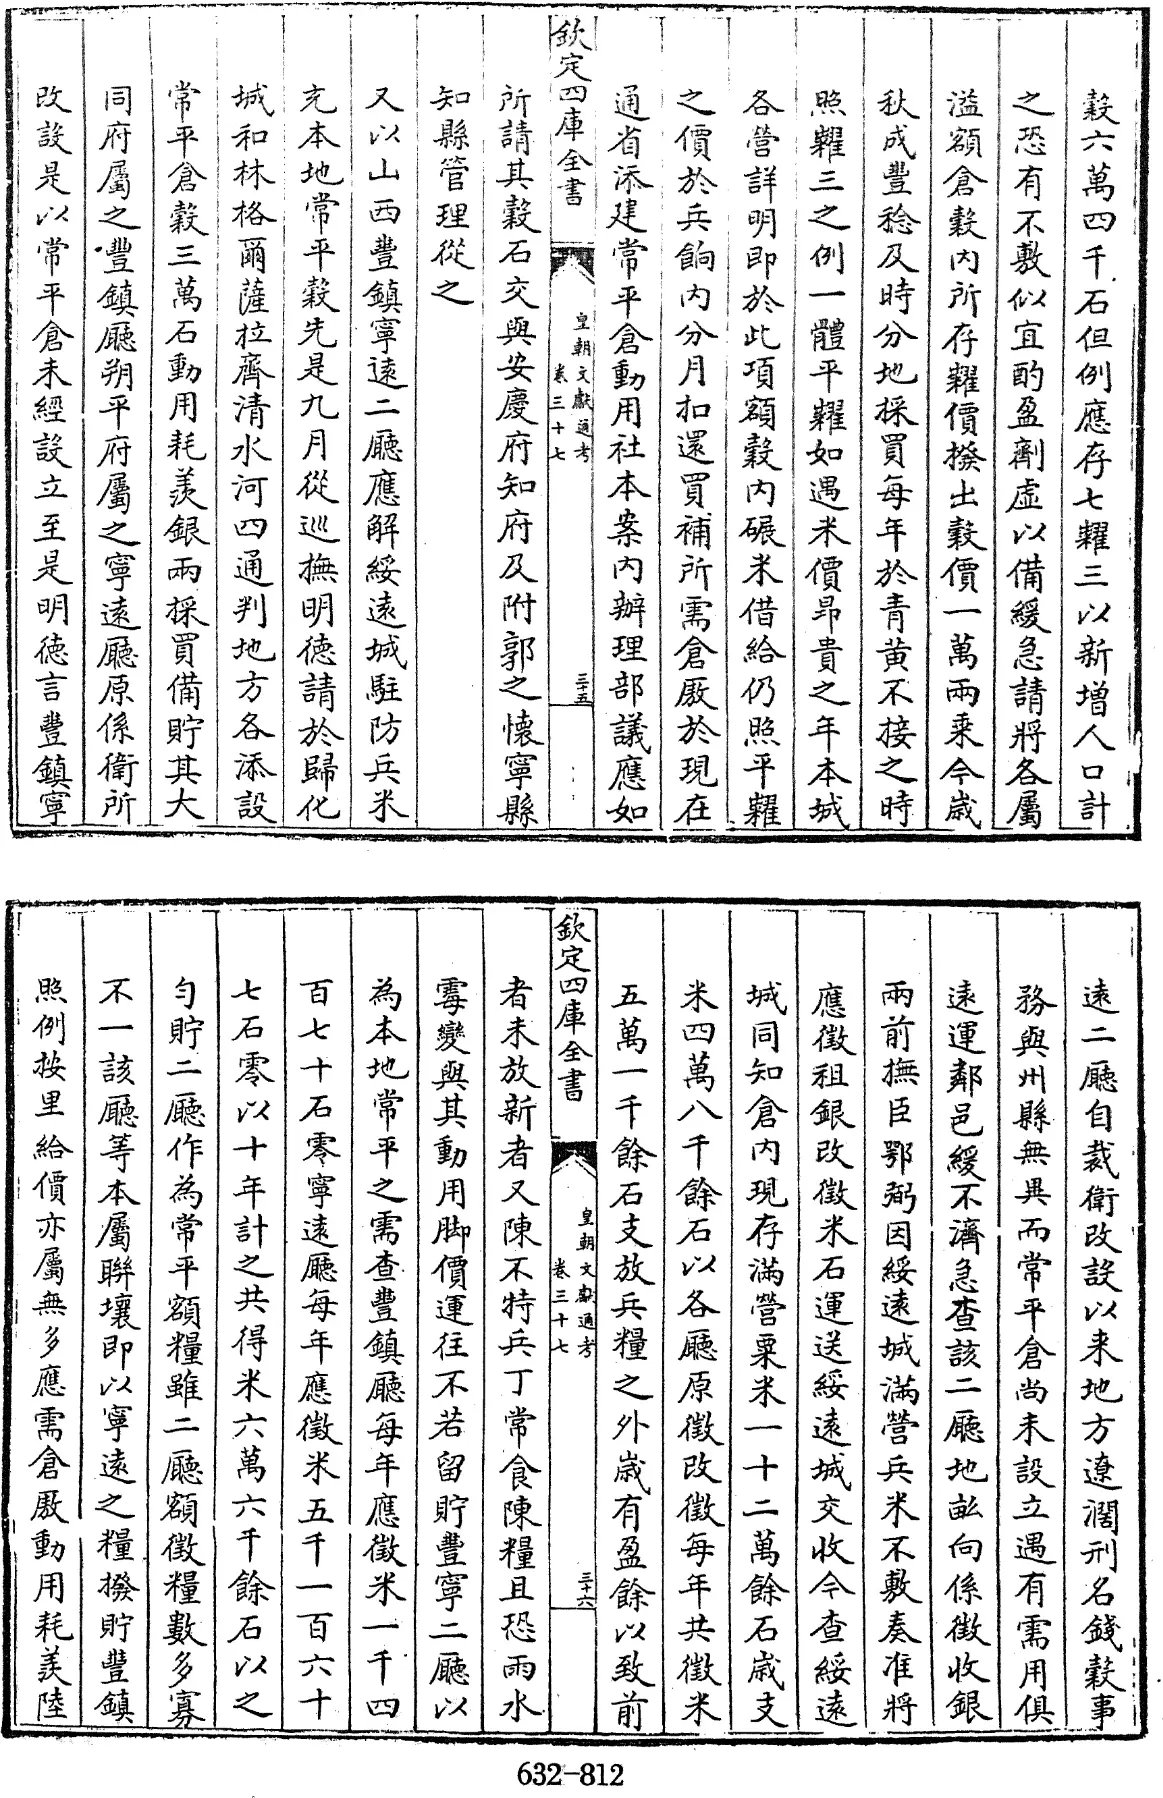 穀六萬四千石但例應存七糶三以新增人口計
之恐有不敷似宜酌盈劑虛以備緩急請將各屬
溢額倉穀内所存糶價撥出穀價一萬兩乘今歳
秋成豐稔及時分地採買每年於青黄不接之時
照糶三之例一體平糶如遇米價昻貴之年本城
各營詳明即於此項額穀内碾米借給仍照平糶
之價於兵餉内分月扣還買補所需倉厫於現在
通省添建常平倉動用社本案内辦理部議應如
欽定四庫全書
皇朝文獻通考
卷三十七
三十五
所請其穀石交與安慶府知府及附郭之懐寧縣
知縣管理從之
又以山西豐鎮寧遠二廳應解綏遠城駐防兵米
充本地常平穀先是九月從巡撫明徳請於歸化
城和林格爾薩拉齊清水河四通判地方各添設
常平倉穀三萬石動用耗羨銀兩採買備貯其大
同府屬之豐鎮廳朔平府屬之寧遠廳原係衛所
改設是以常平倉未經設立至是明徳言豐鎮寧
遠二廳自裁衛改設以來地方遼濶刑名錢穀事
務與州縣無異而常平倉尚未設立遇有需用俱
遠運鄰邑緩不濟急查該二廳地畝向係徴收銀
兩前撫臣鄂弼因綏遠城滿營兵米不敷奏准將
應徴租銀改徴米石運送綏遠城交收今查綏遠
城同知倉内現存滿營粟米一十二萬餘石歳支
米四萬八千餘石以各廳原徴改徴每年共徴米
五萬一千餘石支放兵糧之外歳有盈餘以致前
欽定四庫全書
皇朝文獻通考
卷三十七
三十六
者未放新者又陳不特兵丁常食陳糧且恐雨水
霉變與其動用脚價運往不若留貯豐寧二廳以
為本地常平之需查豐鎮廳每年應徴米一千四
百七十石零寧遠廳每年應徴米五千一百六十
七石零以十年計之共得米六萬六千餘石以之
勻貯二廳作為常平額糧雖二廳額徴糧數多寡
不一該廳等本屬聯壤即以寧遠之糧撥貯豐鎮
照例按里給價亦屬無多應需倉厫動用耗羨陸
632-812